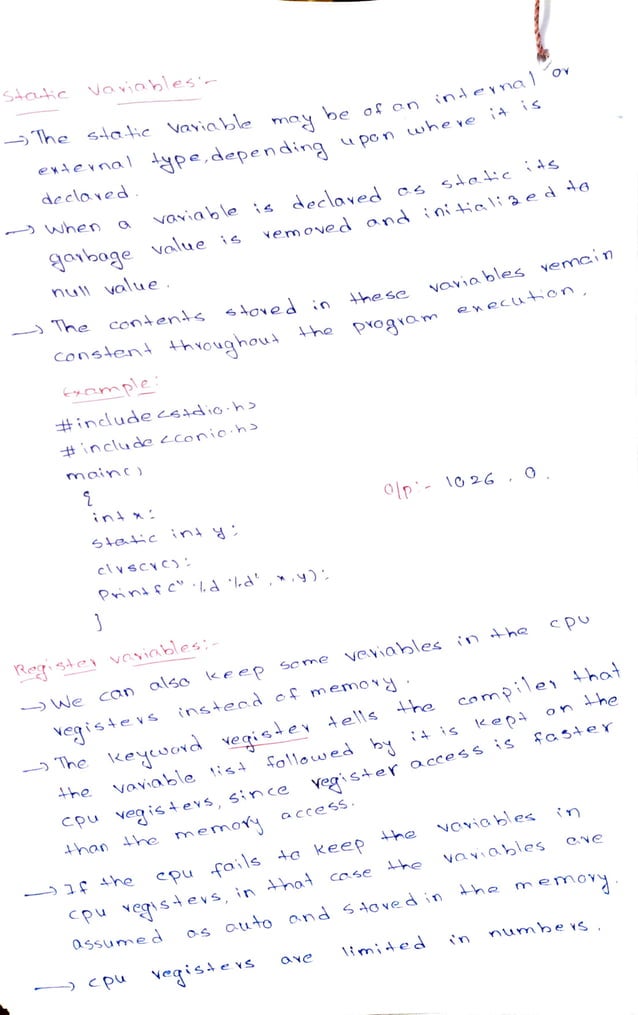 Static Variables:-
→ The static variable may be of an internal or
external type, depending upon where it is
declared.
→ When a variable is declared as static its
garbage value is removed and initialized to
null value.
→ The contents stored in these variables remain
constent throughout the program execution.
Example:
#include<stdio.h>
#include <conio.h>
main()
{
int x;
static int y;
O/p:- 1026, 0.
clrscr();
Printf(" %d %d", x, y);
}
Register variables:-
→ We can also keep some variables in the cpu
registers instead of memory.
→ The keyword register tells the compiler that
the variable list followed by it is kept on the
cpu registers, since register access is faster
than the memory access.
→ If the cpu fails to keep the variables in
cpu registers, in that case the variables are
assumed as auto and stored in the memory.
→ cpu registers are limited in numbers.